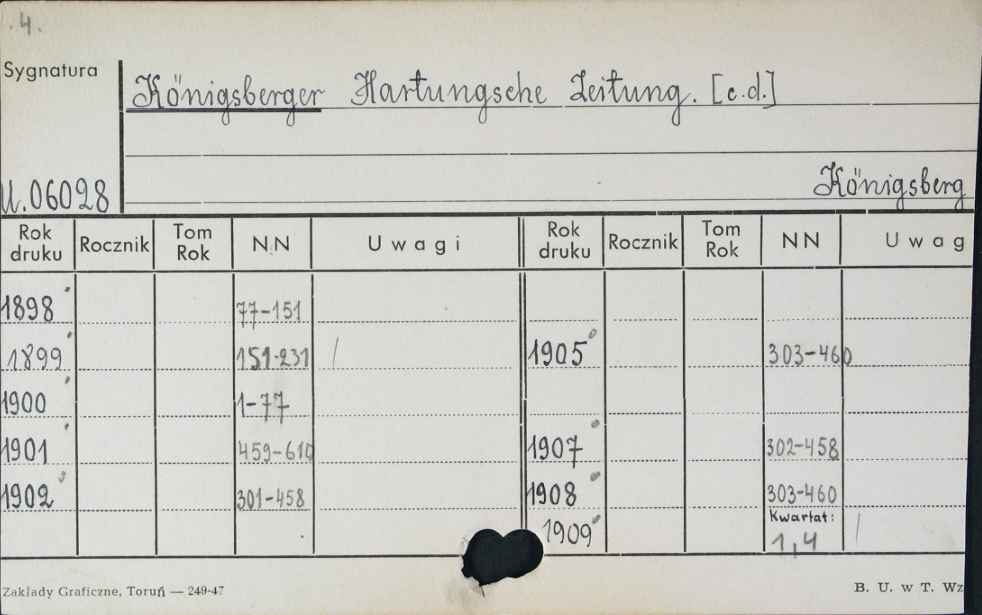 4.
Sygnatura
Königsberger Hartungsche Zeitung. [c.d.]
U.06028
Königsberg
Rok druku Rocznik Tom Rok NN Uwagi Rok druku Rocznik Tom Rok NN Uwag
1898 77-151
1899 151-231 1905 303-460
1900 1-77
1901 459-610 1907 302-458
1902 301-458 1908 303-460
1909 Kwartał: 1,4
Zakłady Graficzne, Toruń — 249-47 B. U. w T. Wz